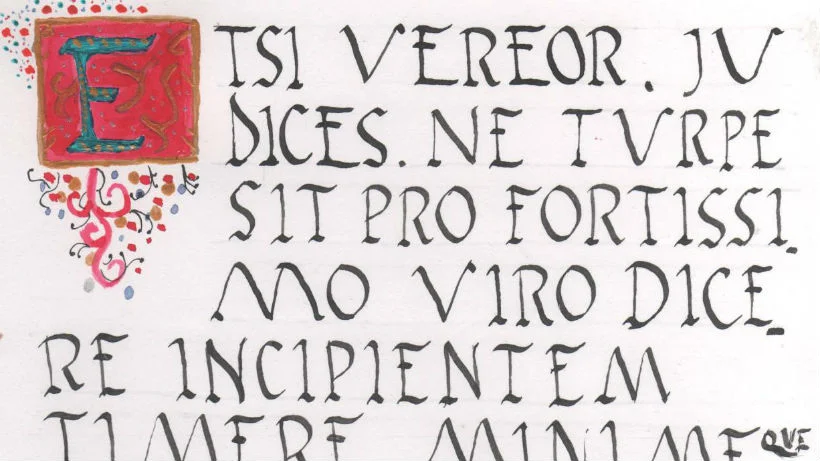 ETSI VEREOR. JV
DICES. NE TVRPE
SIT PRO FORTISSI.
MO VIRO DICE.
RE INCIPIENTEM
TIMERE MINIMEQVE